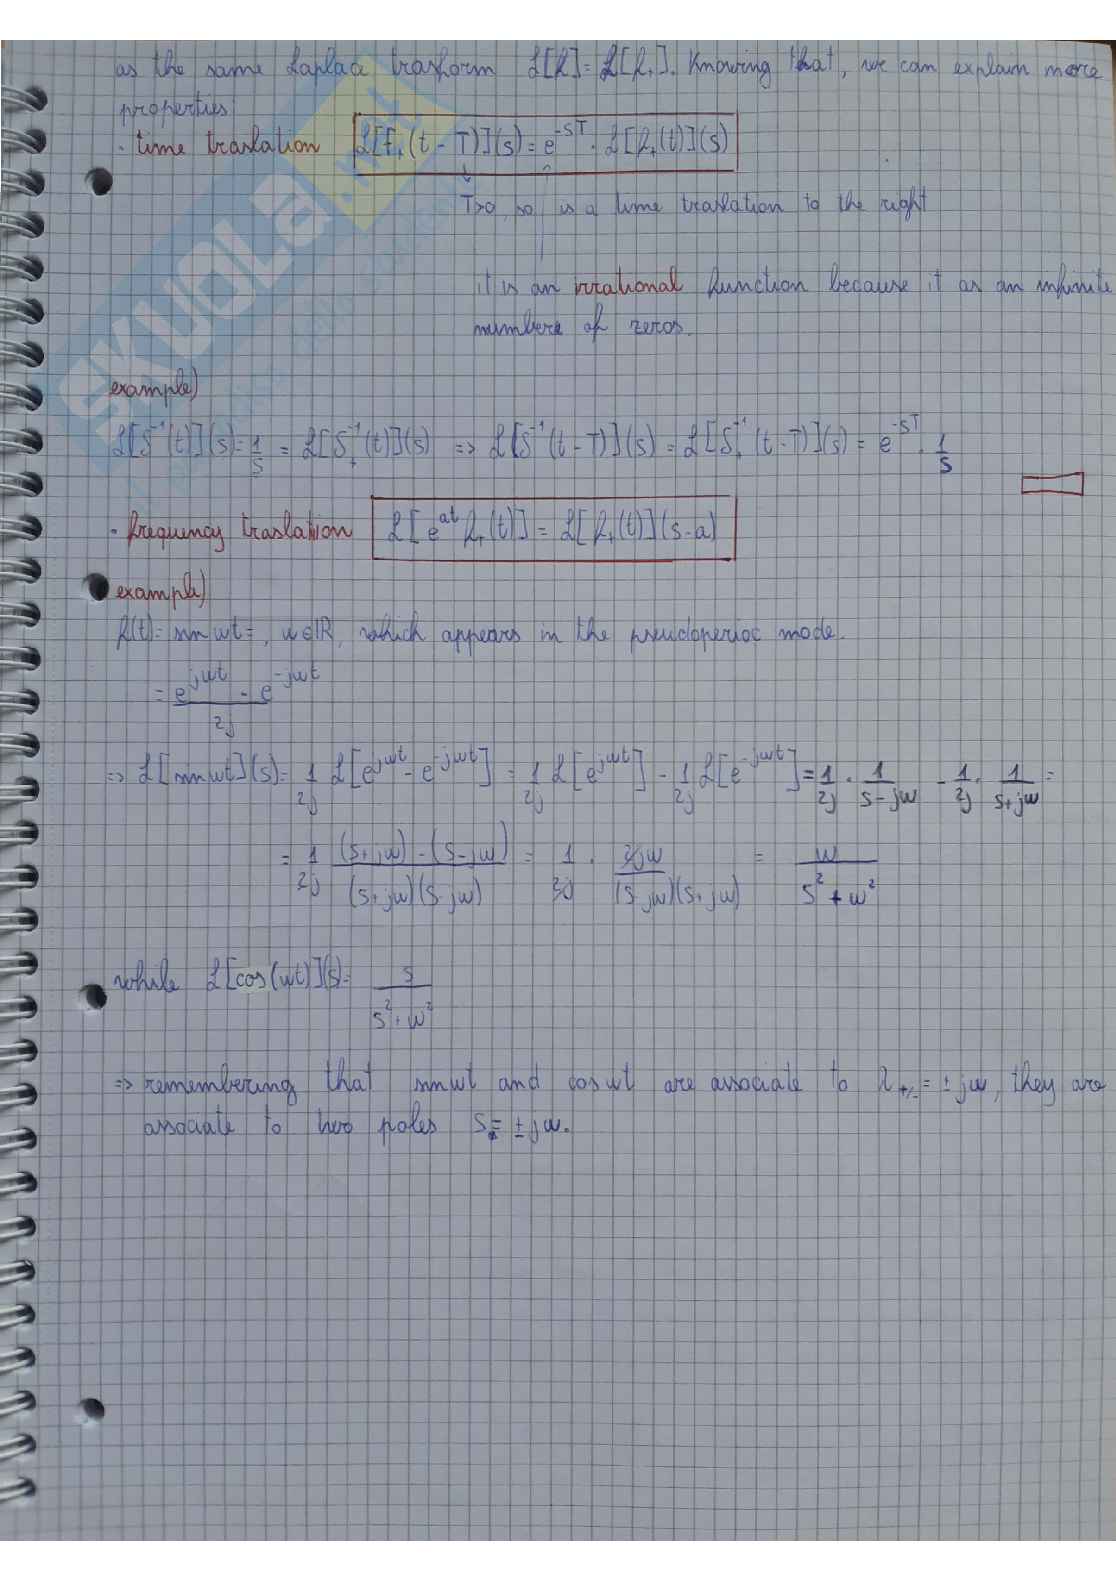 as the same Laplace trasform ℒ[f] = ℒ[f₊]. Knowing that, we can explain more
properties:
· time traslation ℒ[f₊(t - T)](s) = e^{-sT} · ℒ[f₊(t)](s)
T>0, so is a time traslation to the right
it is an irrational function because it as an infinite
numbers of zeros.
example)
ℒ[δ⁻¹(t)](s) = 1/s = ℒ[δ₊⁻¹(t)](s) => ℒ[δ⁻¹(t-T)](s) = ℒ[δ₊⁻¹(t-T)](s) = e^{-sT} · 1/s
· frequency traslation ℒ[e^{at} f₊(t)] = ℒ[f₊(t)](s-a)
example)
f(t) = sin ωt =, ω∈ℝ, which appears in the pseudoperioc mode.
= (e^{jωt} - e^{-jωt})/2j
=> ℒ[sin ωt](s) = 1/2j ℒ[e^{jωt} - e^{-jωt}] = 1/2j ℒ[e^{jωt}] - 1/2j ℒ[e^{-jωt}] = 1/2j · 1/(s-jω) - 1/2j · 1/(s+jω) =
= 1/2j ((s+jω) - (s-jω))/((s+jω)(s-jω)) = 1/2j · 2jω/((s-jω)(s+jω)) = ω/(s²+ω²)
while ℒ[cos(ωt)](s) = s/(s²+ω²)
=> remembering that sin ωt and cos ωt are associate to λ₊/₋ = ±jω, they are
associate to two poles s = ±jω.
SKUOLA.net